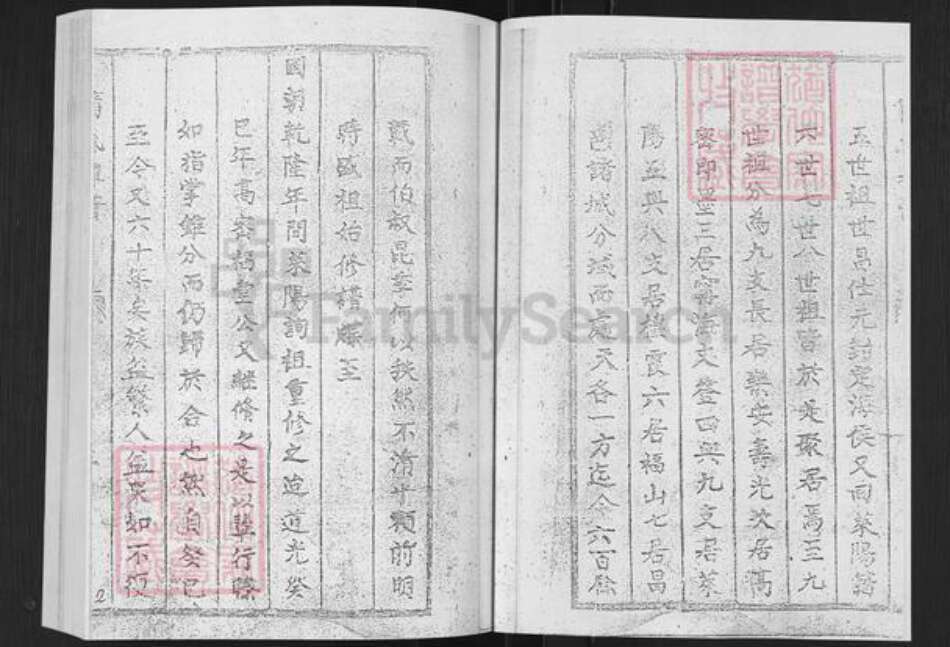 五世祖世昌仕元封定海侯又由萊陽
六世七世八世祖皆於是聚居焉至九
世祖分為九支長居樂安壽光次居高
密即墨三居寧海文登四與九支居萊
陽五與八支居棲霞六居福山七居昌
邑諸城分域而處天各一方迄今六百餘
載而伯叔昆季何以秩然不淆乎顧前明
時盛祖始修譜牒至
國朝乾隆年間萊陽詢祖重修之迨道光癸
巳年高密 公又繼修之是以輩行
如指掌雖分而仍歸於合也然自癸巳
至今又六十年矣族益繁人益眾如不
2
FamilySearch